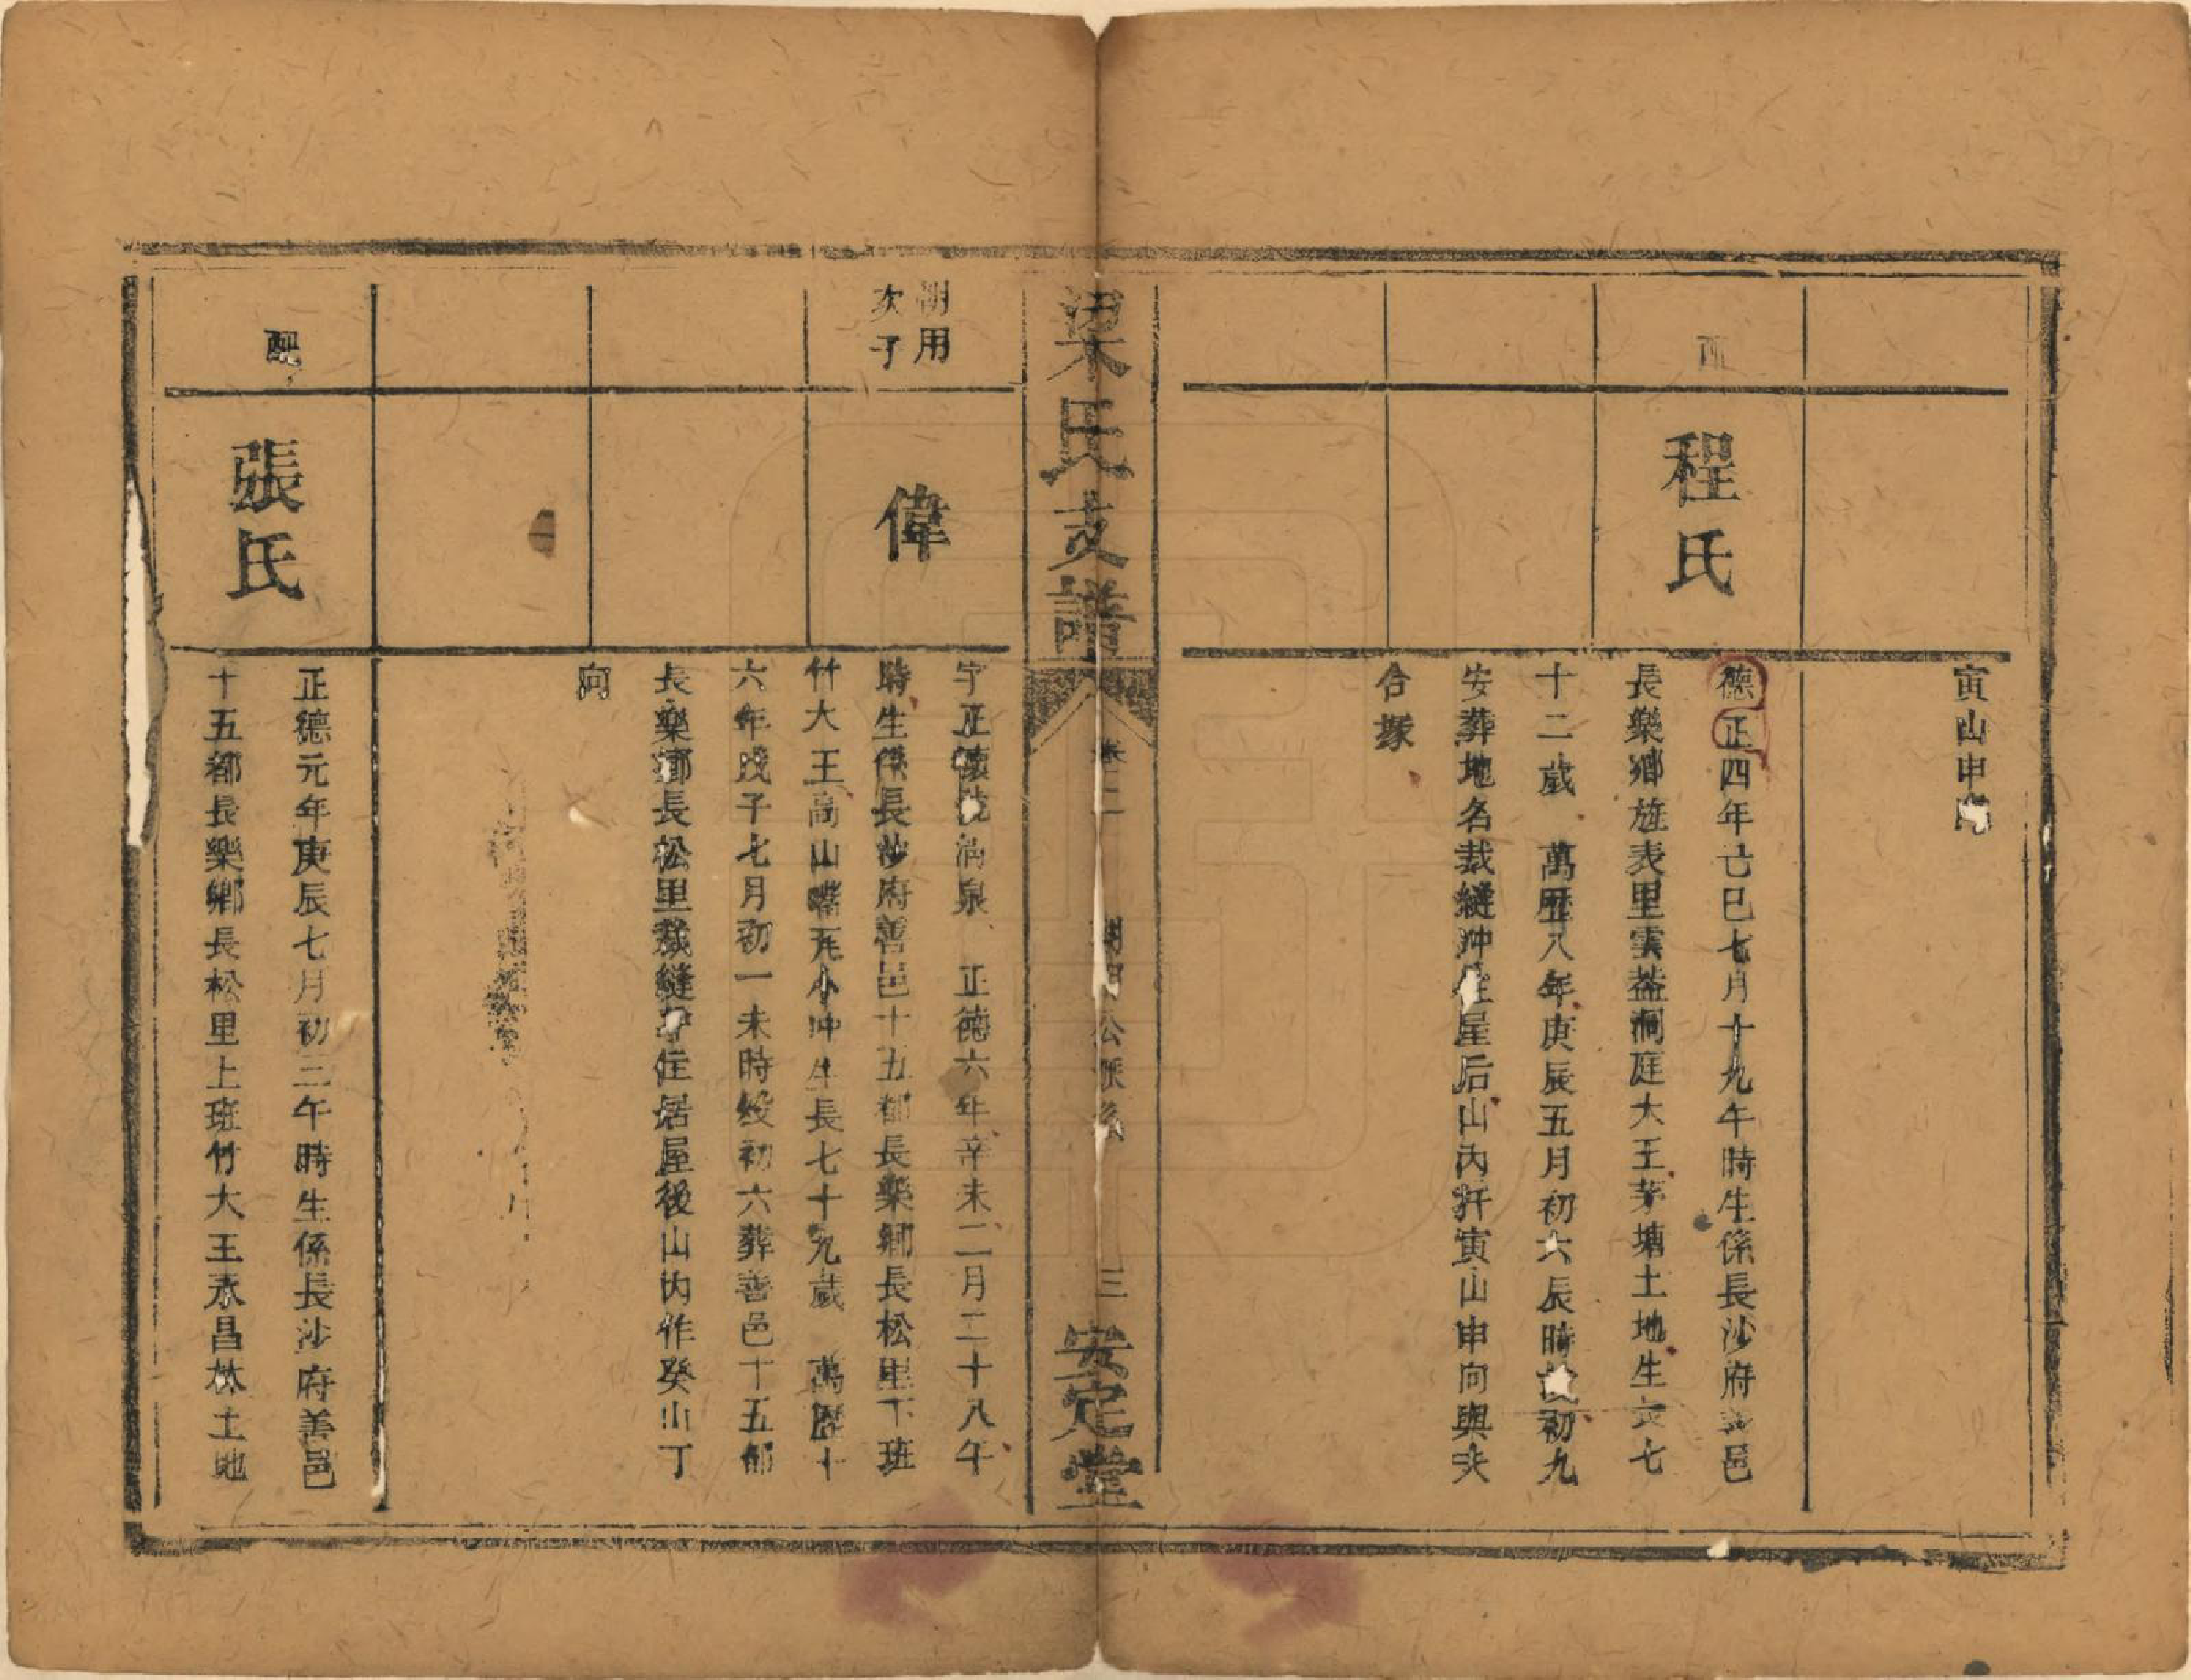 寅山申向
配
程氏
德正四年己巳七月十九午時生係長沙府善邑
長樂鄉旌表里雲蓋洞庭大王茅塘土地生女七
十二歲 萬歷八年庚辰五月初六辰時歿初九
安葬地名裁縫沖住屋后山內扦寅山申向與夫
合塚
梁氏支譜
卷二
朝用公派系
三
安定堂
朝用
次子
偉
字正德號湧泉 正德六年辛未二月二十八午
時生係長沙府善邑十五都長樂鄉長松里下班
竹大王高山嘴尾小沖生長七十九歲 萬歷十
六年戊子七月初一未時歿初六葬善邑十五都
長樂鄉長松里裁縫沖住居屋後山內作癸山丁
向
配
張氏
正德元年庚辰七月初三午時生係長沙府善邑
十五都長樂鄉長松里上班竹大王永昌林土地